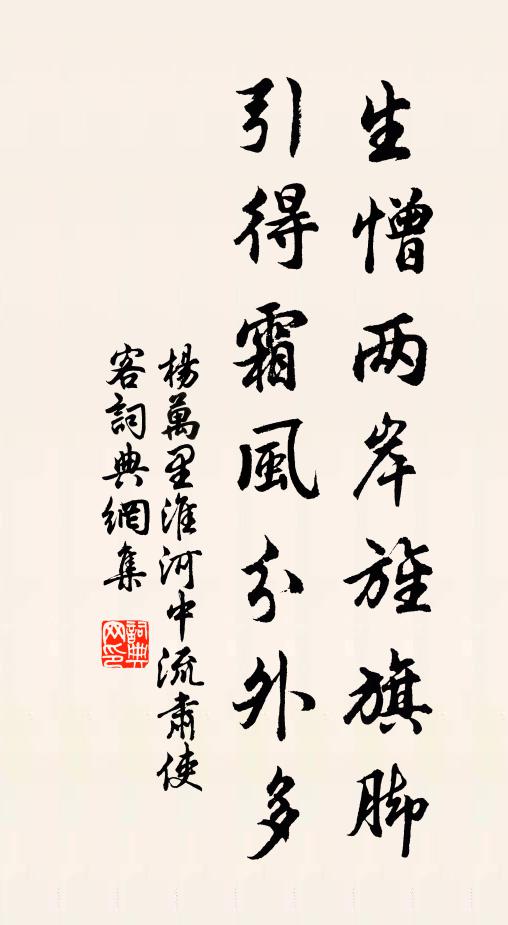 生憎两岸旌旗脚
引得霜風分外多
楊萬里淮河中流肅使
客詞典網集
詞典网印